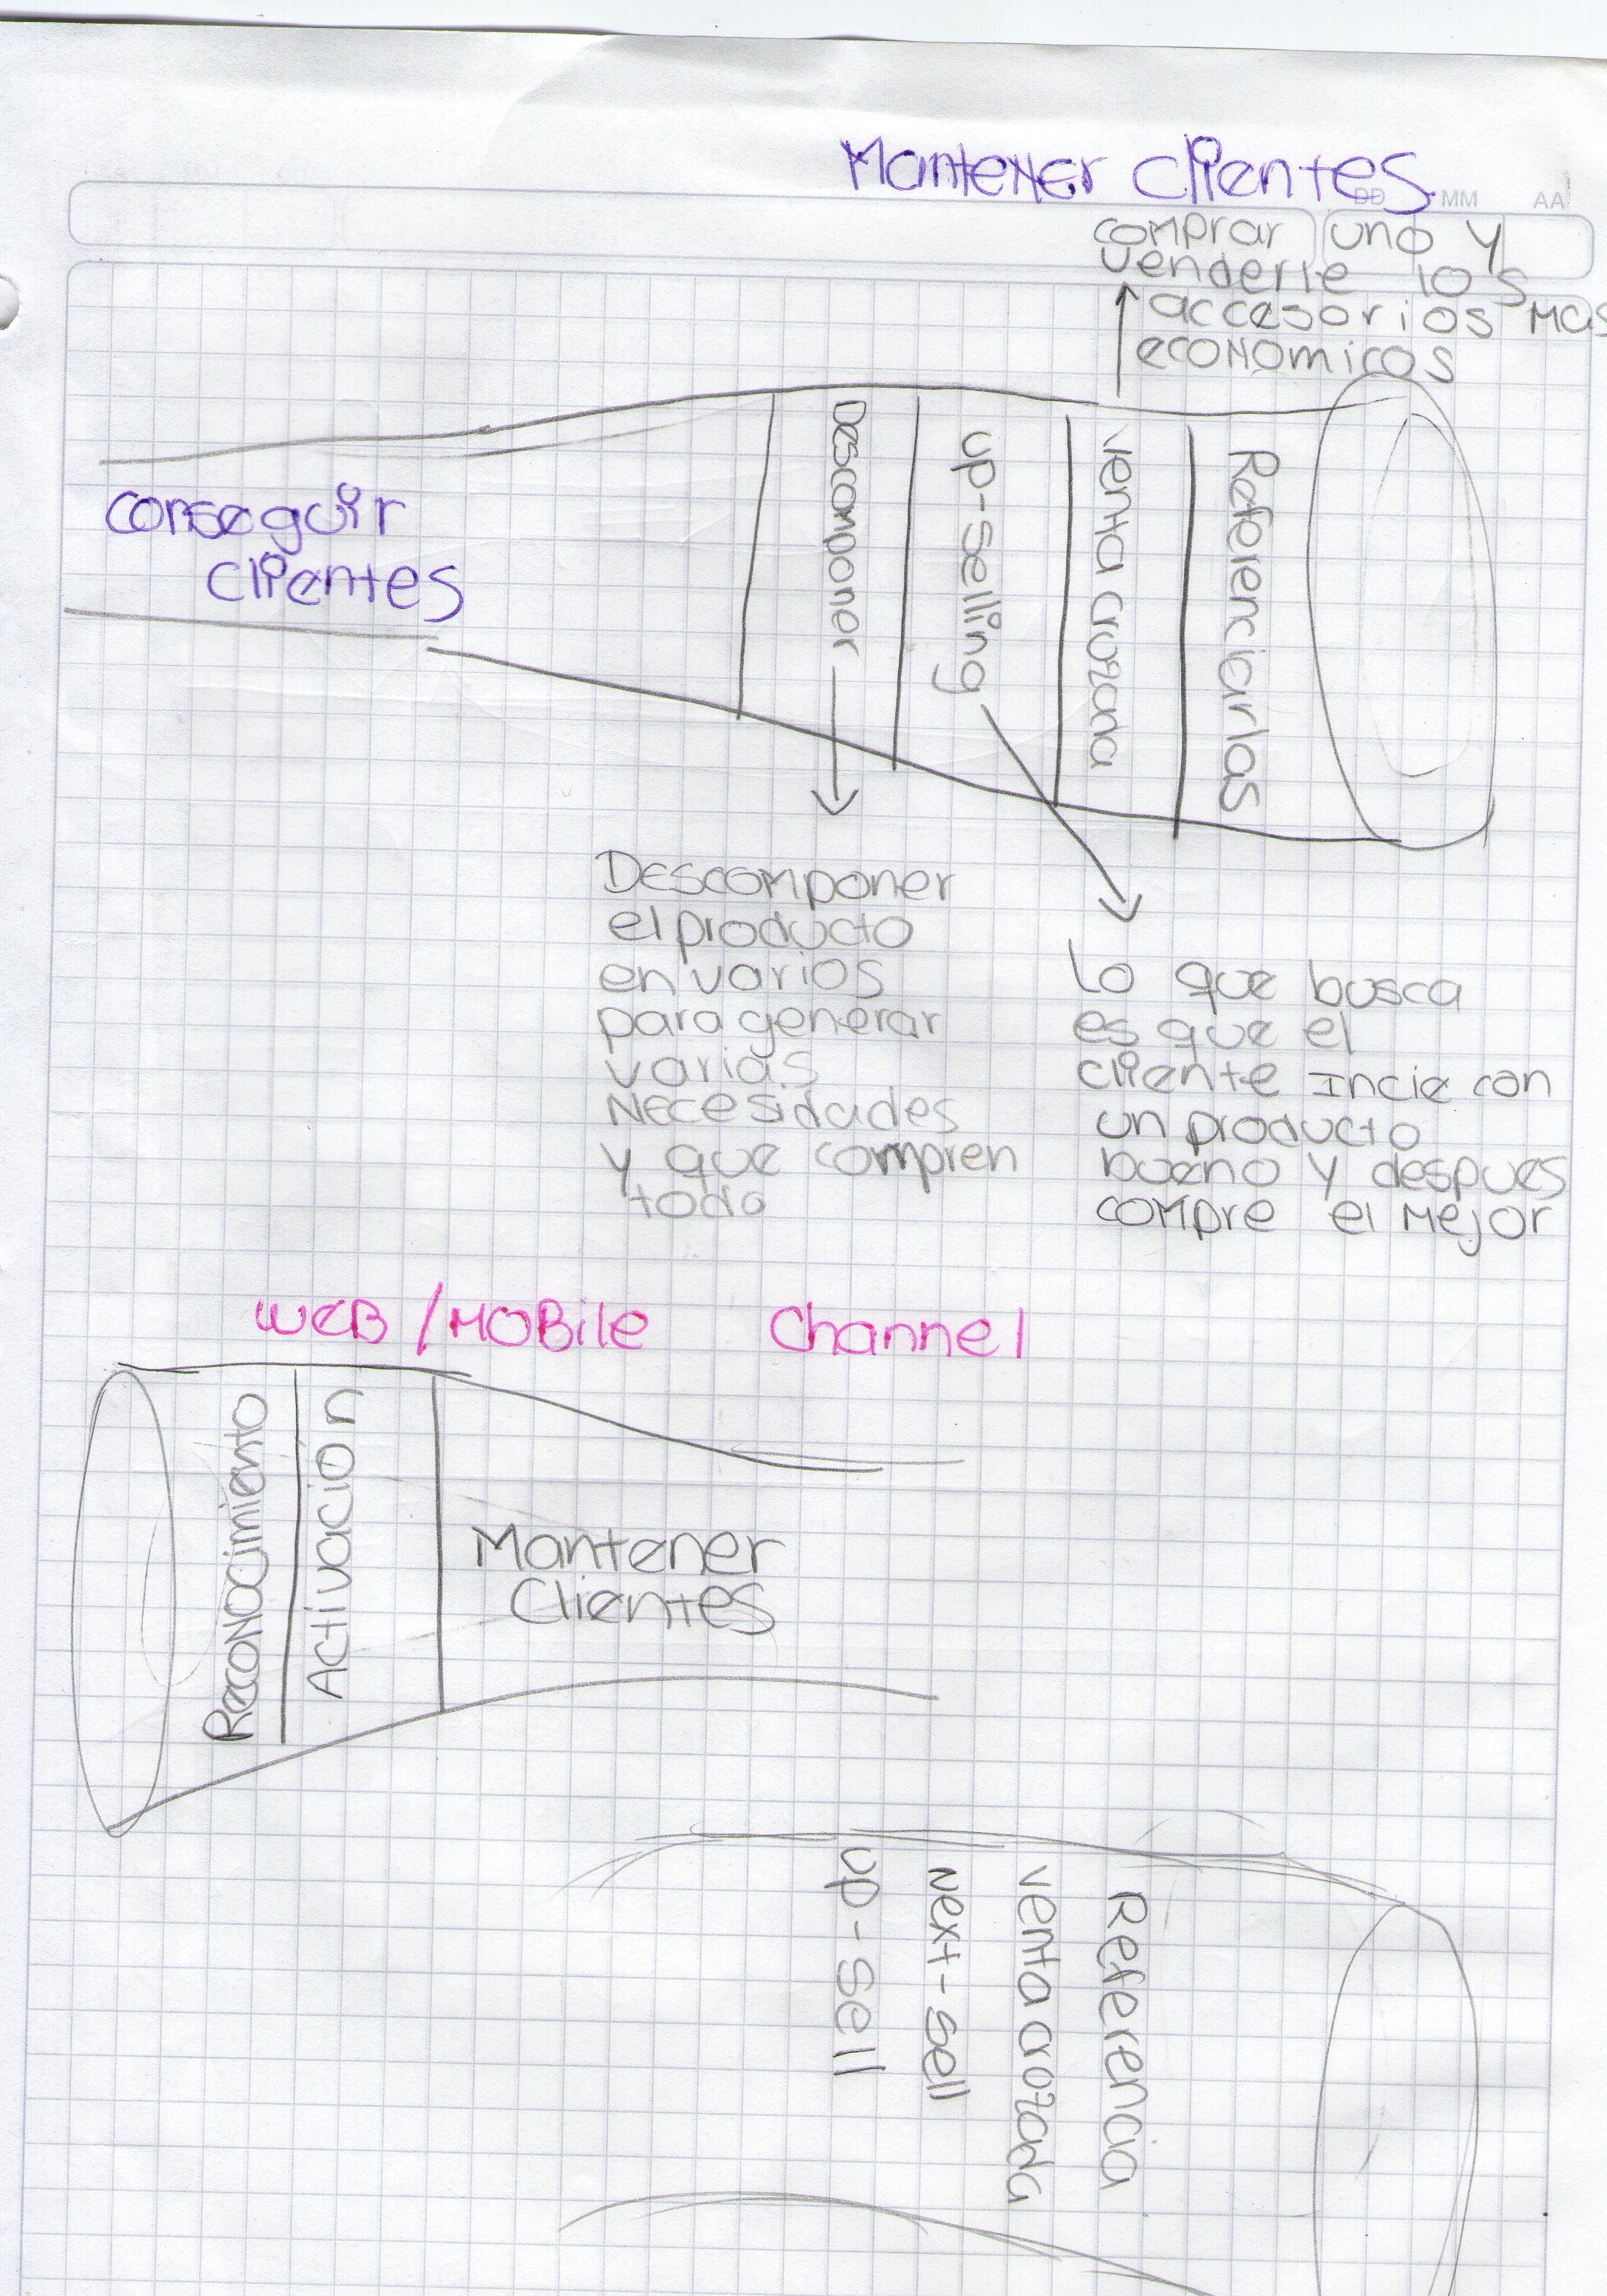 Mantener clientes
DD MM AA
comprar uno y
venderle los
accesorios mas
economicos
conseguir
clientes
Descomponer
up-selling
venta cruzada
Referenciarlas
Descomponer
el producto
en varios
para generar
varias
Necesidades
y que compren
todo
Lo que busca
es que el
cliente Incie con
un producto
bueno y despues
compre el Mejor
WEB / MOBile Channel
Reconocimiento
Activacion
Mantener
Clientes
up-sell
Next-sell
venta cruzada
Referencia